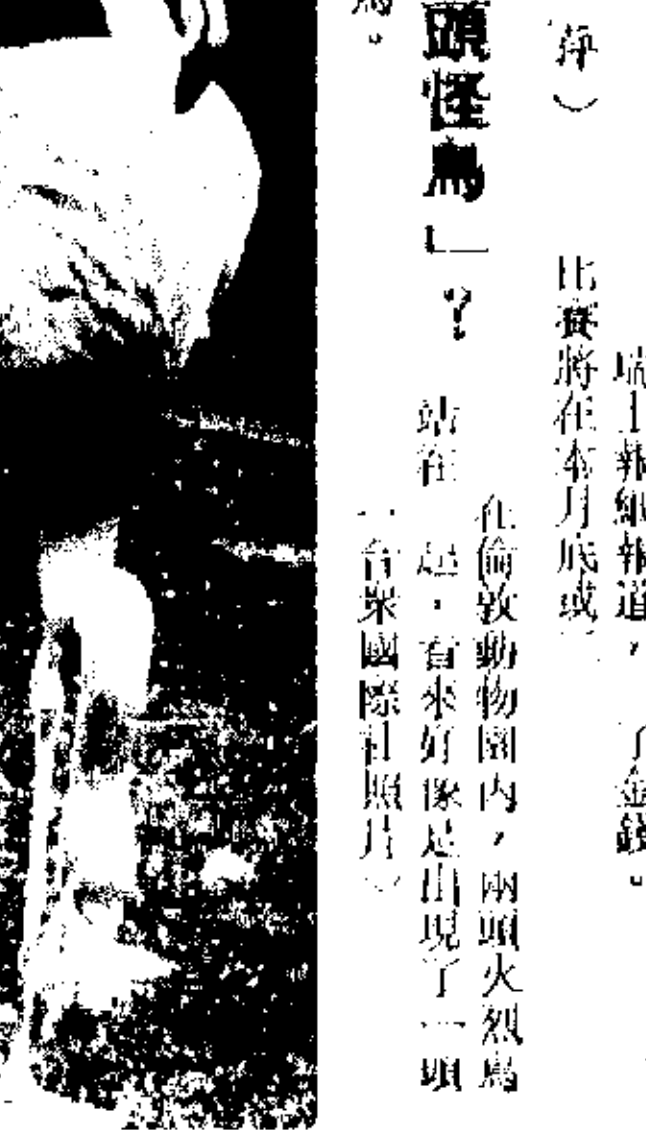 瑞士報紙報道，
了金錢。
比賽將在本月底或
頭怪鳥」？
在倫敦動物園內，兩頭火烈鳥
站在 起，看來好像是出現了一頭
合眾國際社照片）